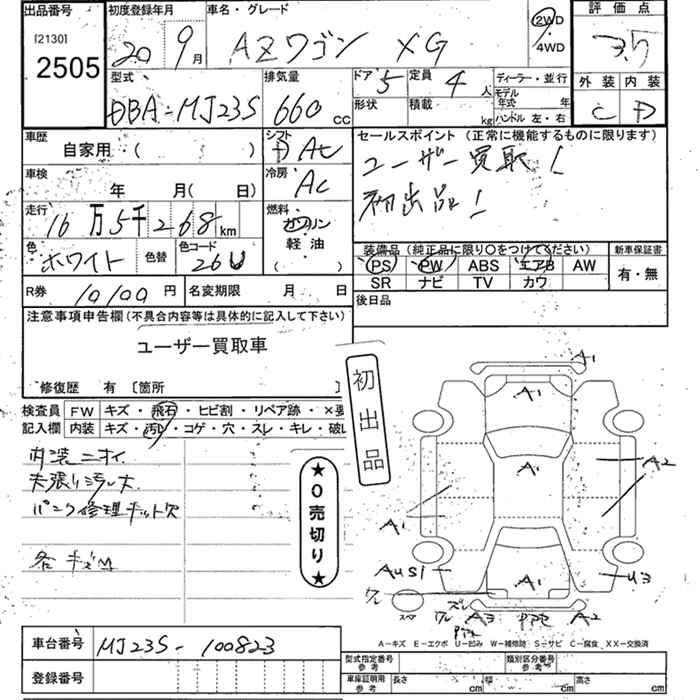 出品番号 初度登録年月 車名・グレード 評価点
[2130] 2505 20 9月 AZワゴン XG 2WD 4WD 3.5
型式 排気量 ドア 5 定員 4人 ディーラー・並行 外装 内装
DBA-MJ23S 660cc 形状 積載 kg モデル年式 年 ハンドル 左・右 C D
車歴 自家用 ( ) シフト AT セールスポイント (正常に機能するものに限ります)
車検 年 月( 日) 冷房 AC ユーザー買取!
走行 16万5千268km 燃料 ガソリン 軽油 ( ) 初出品!
色 ホワイト 色替 色コード 26U 装備品 (純正品に限り○をつけてください) 新車保証書
PS PW ABS エアB AW 有・無
SR ナビ TV カワ
R券 10100円 名変期限 月 日 後日品
注意事項申告欄 (不具合内容等は具体的に記入して下さい)
ユーザー買取車
修復歴 有 〔箇所 〕
初出品
検査員 FW キズ・飛石・ヒビ割・リペア跡・×要
記入欄 内装 キズ・汚レ・コゲ・穴・スレ・キレ・破レ
内装ニオイ
天張リヨゴレ大
パンク修理キット欠
各キズM
★0売切り★
A1
A1
A1
A2
A1
A1
U3
ワレ
スペア
ズレ
ワレ A3 A2
A-キズ E-エクボ U-凹み W-補修跡 S-サビ C-腐食 XX-交換済
車台番号 MJ23S-100823
登録番号
型式指定番号 参考 類別区分番号 参考
車庫証明用 参考 長さ cm 幅 cm 高さ cm